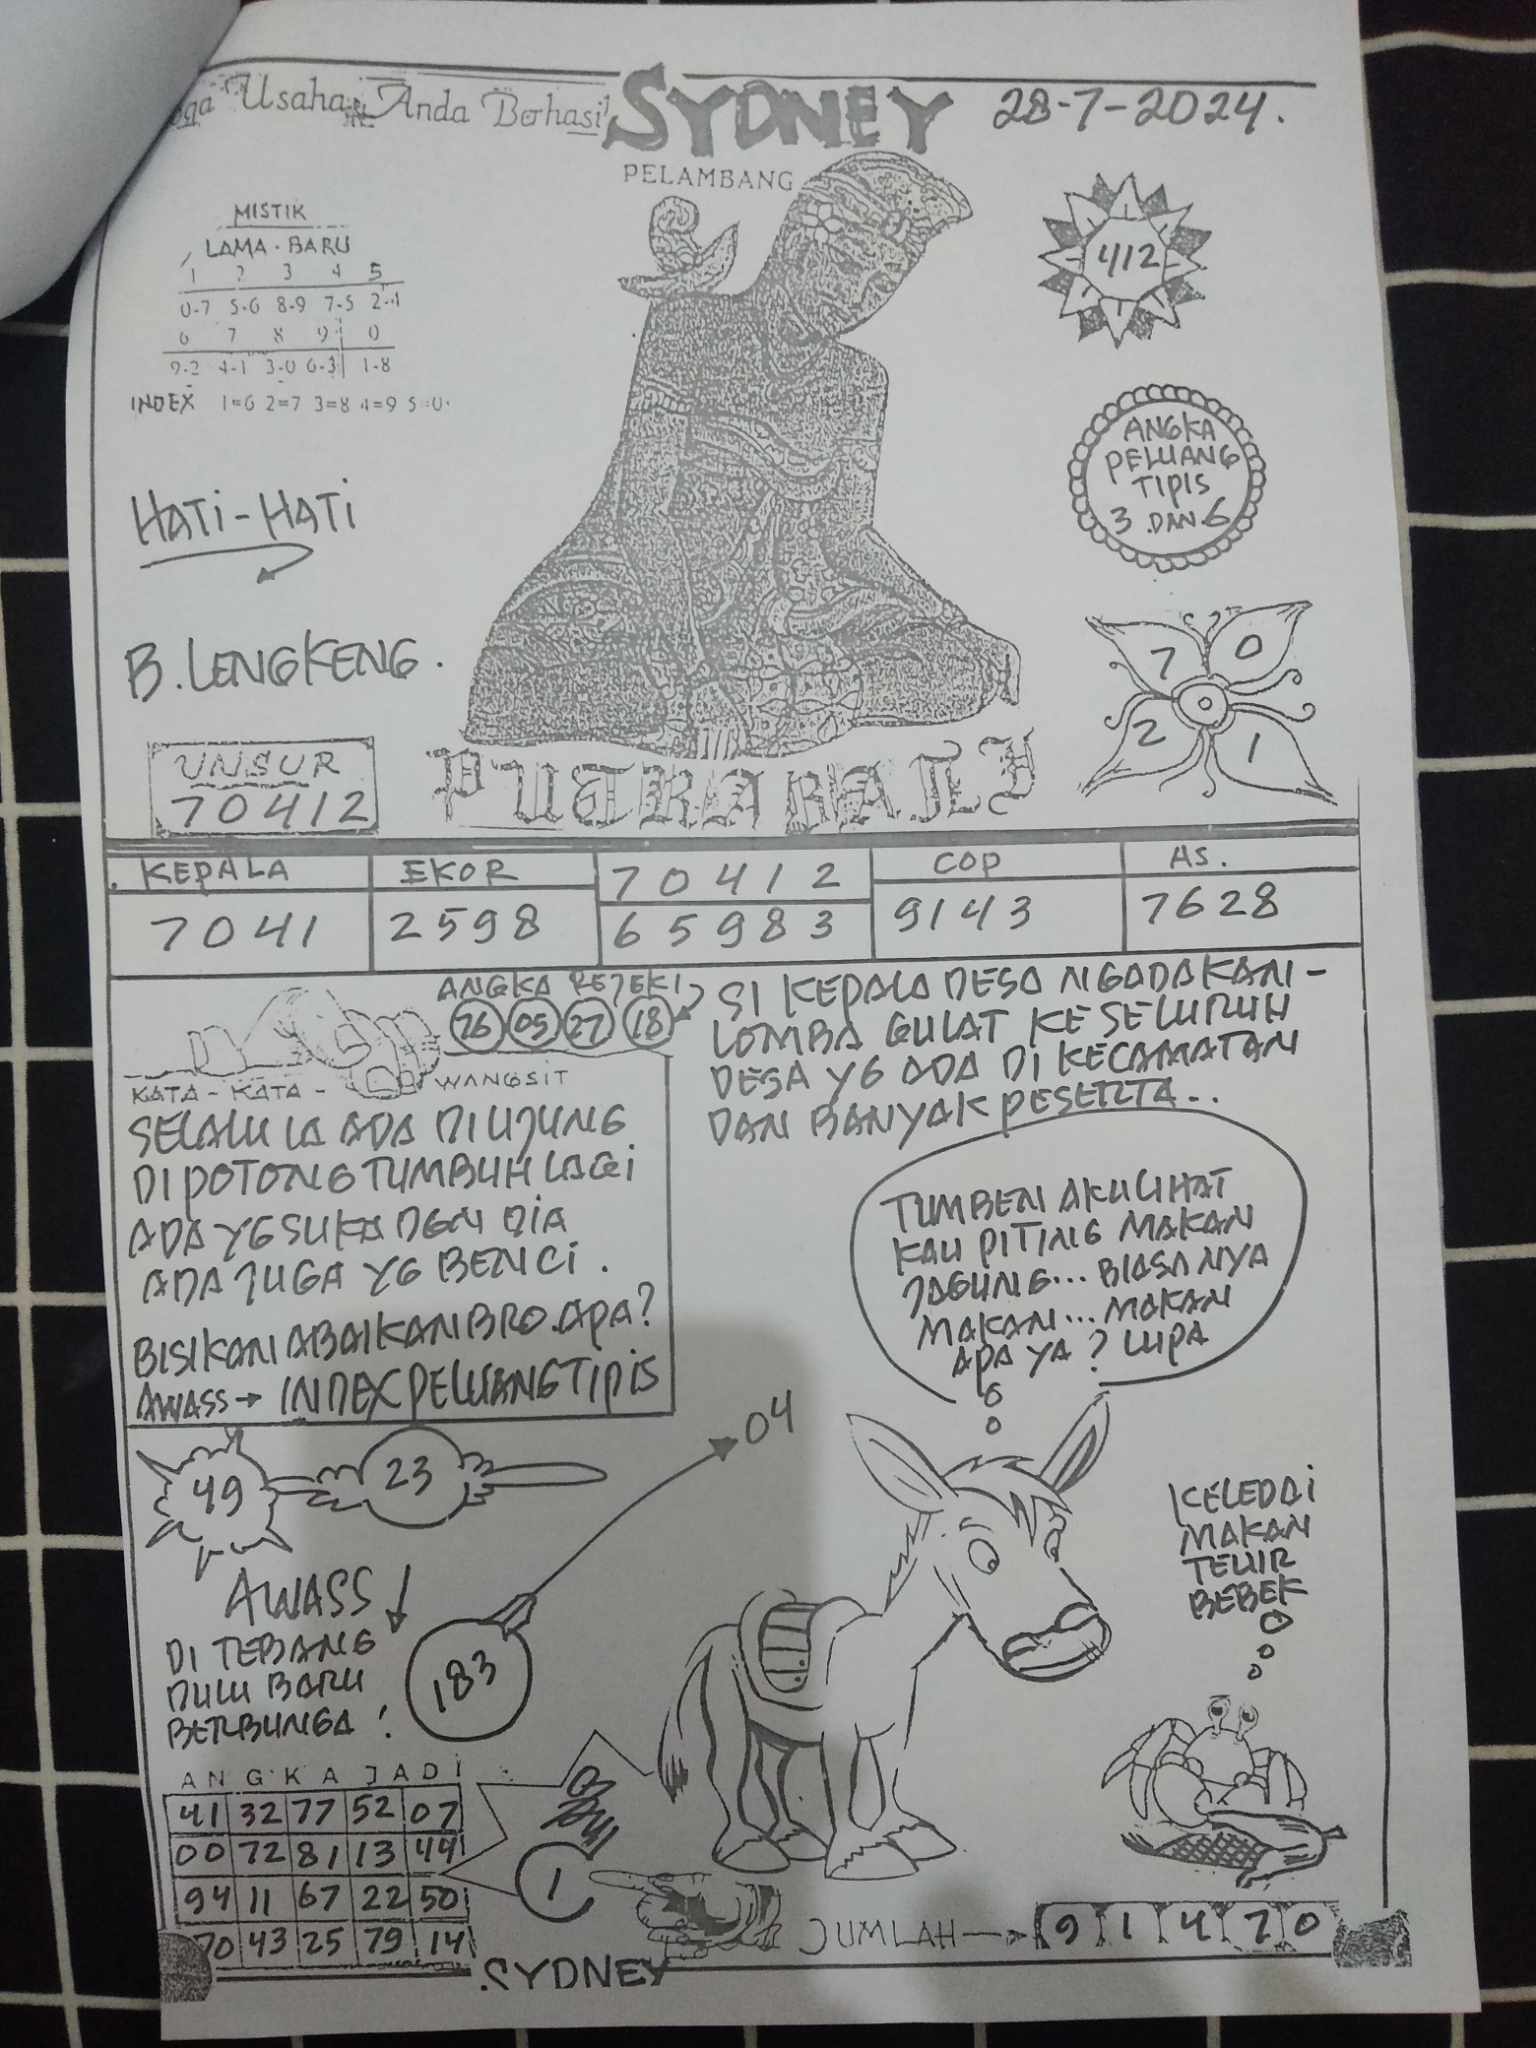 Usaha Anda Berhasil
SYDNEY
28-7-2024.
PELAMBANG
MISTIK
LAMA - BARU
1 2 3 4 5
0-7 5-6 8-9 7-5 2-4
6 7 8 9 0
9-2 4-1 3-0 6-3 1-8
INDEX 1=6 2=7 3=8 4=9 5=0
412
ANGKA
PELUANG
TIPIS
3 DAN 6
HATI-HATI
B. LENGKENG.
7 0
2 1
UNSUR
70412
PUTRA BALI
KEPALA
7041
EKOR
2598
70412
65983
COP
9143
AS.
7628
ANGKA REJEKI
26 05 27 18
KATA - KATA - WANGSIT
SELALU IA ADA DIUJUNG
DIPOTONG TUMBUH LAGI
ADA YG SUKA DGN DIA
ADA JUGA YG BENCI.
BISIKAN ABAIKAN BRO. APA?
AWASS → INDEX PELUANG TIPIS
SI KEPALA DESA NGADAKAN -
LOMBA GULAT KE SELURUH
DESA YG ADA DI KECAMATAN
DAN BANYAK PESERTA..
TUMBEN AKU LIHAT
KAU PITING MAKAN
JAGUNG... BIASANYA
MAKAN... MAKAN
APA YA? LUPA
49
23
04
AWASS
DI TEBANG
DULU BARU
BERBUNGA!
183
KELEDAI
MAKAN
TELUR
BEBEK
ANGKA JADI
41 32 77 52 07
00 72 81 13 44
94 11 67 22 50
70 43 25 79 14
1
JUMLAH → 9 1 4 7 0
SYDNEY